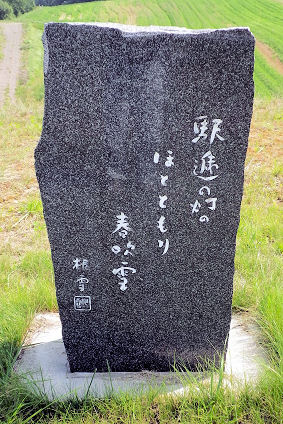 駅逓の灯の
ほとともり
春吹雪
根雪